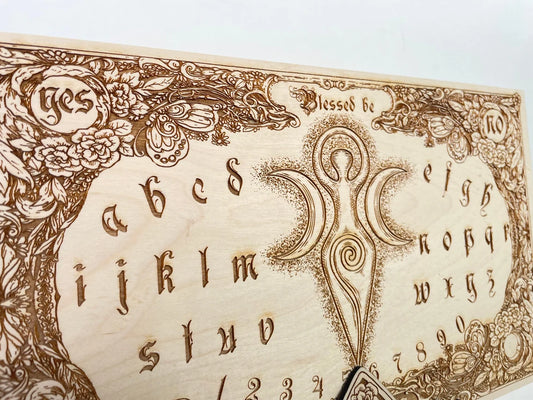 yes Blessed be no
a b c d e f g h
i j k l m n o p q r
s t u v w x y z
1 2 3 4 7 8 9 0